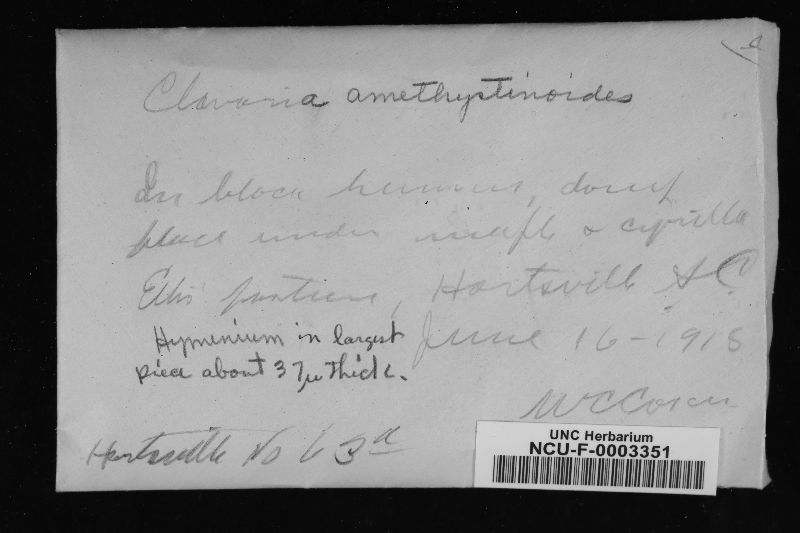 Clavaria amethystinoides
In black humus, damp
place under maple & cyrilla
Ellis' pasture, Hartsville S.C.
Hymenium in largest June 16-1918
piece about 37µ thick.
WCCoker
Hartsville No 63a
UNC Herbarium
NCU-F-0003351